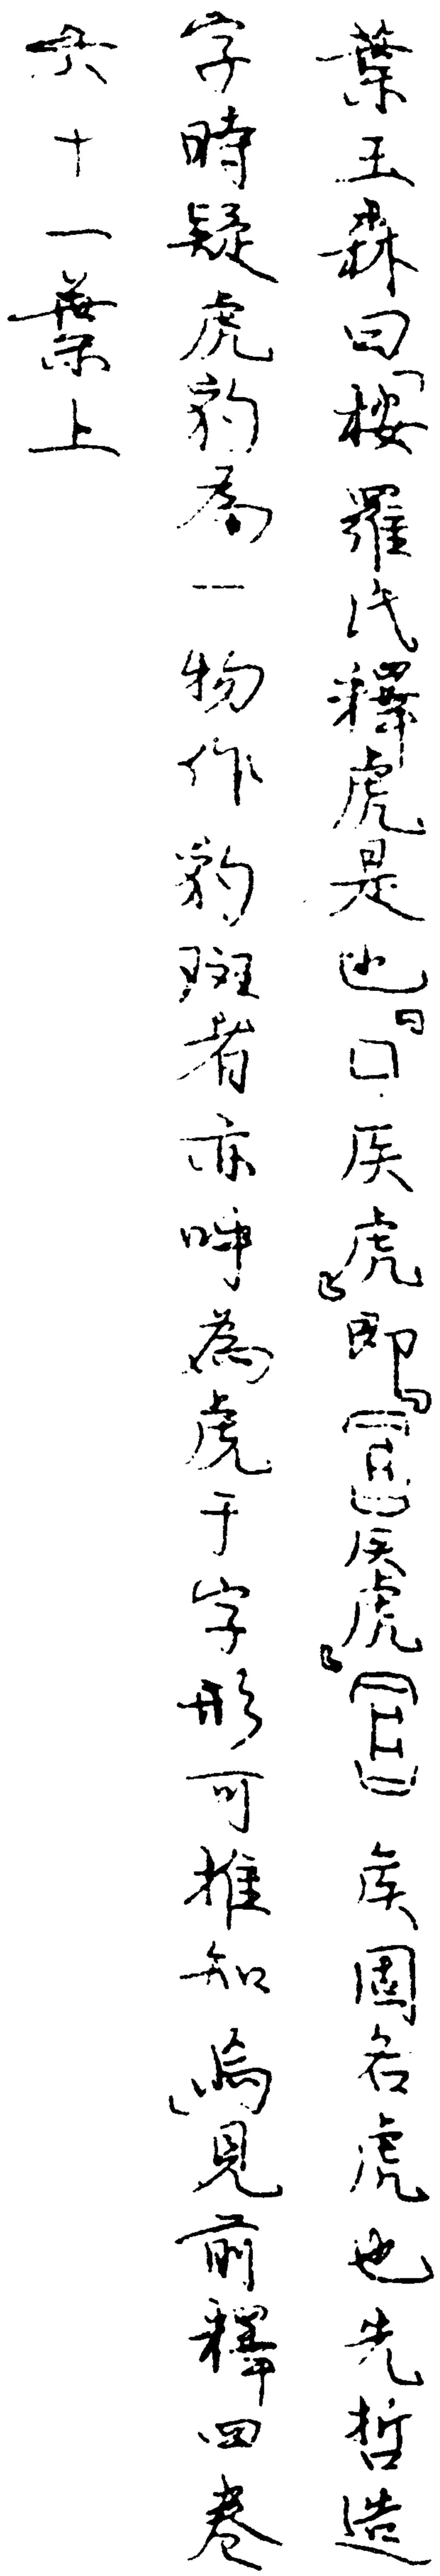 葉玉森曰「桉羅氏釋虎是也『囗侯虎』即『𠱠侯虎』𠱠侯國名虎也先哲造
字時疑虎豹為一物作豹斑者亦呼為虎于字形可推知」嶋見前釋四卷
六十一葉上